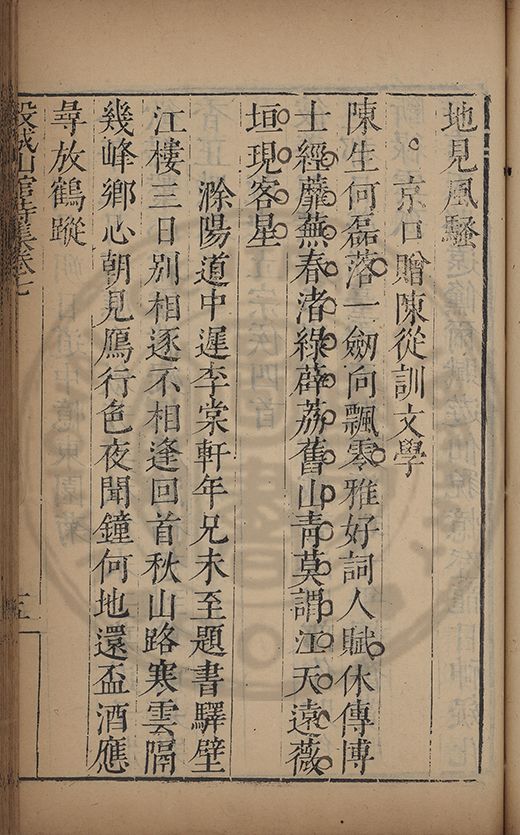 地見風騷
京口贈陳從訓文學
陳生何磊落一劒向飄零雅好詞人賦休傳博
士經蘼蕪春渚綠薜荔舊山青莫謂江天遠薇
垣現客星
滁陽道中遲李棠軒年兄未至題書驛壁
江樓三日別相逐不相逢回首秋山路寒雲隔
幾峰鄉心朝見鴈行色夜聞鐘何地還盃酒應
尋放鶴蹤
穀城山館詩集卷七
五